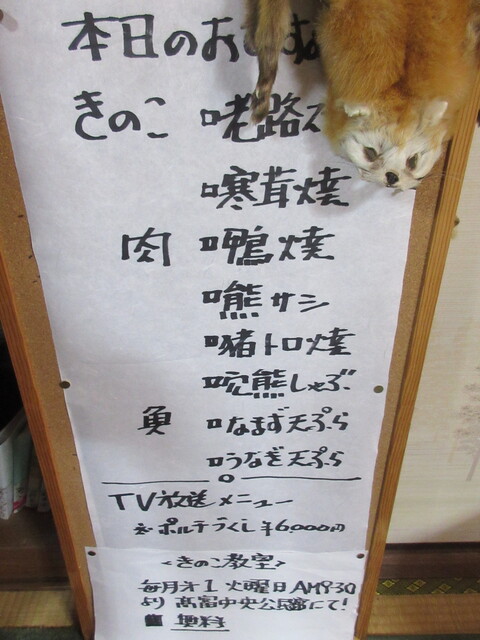 本日のおすすめ
きのこ 口老路ス
口寒茸焼
肉 口鴨焼
口熊サシ
口猪トロ焼
口穴熊しゃぶ
魚 口なまず天ぷら
口うなぎ天ぷら
TV放送メニュー
ポルチづくし ¥6,000円
<きのこ教室>
毎月オ1 火曜日 AM9:30
より 高富中央公民館にて!
無料